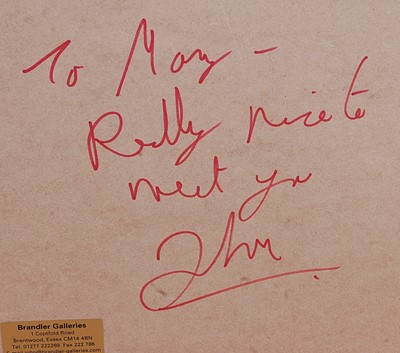 To Mary –
Really nice to
meet you
John
Brandler Galleries
1 Coptfold Road
Brentwood, Essex CM14 4BN
Tel: 01277 222269 Fax 222 786